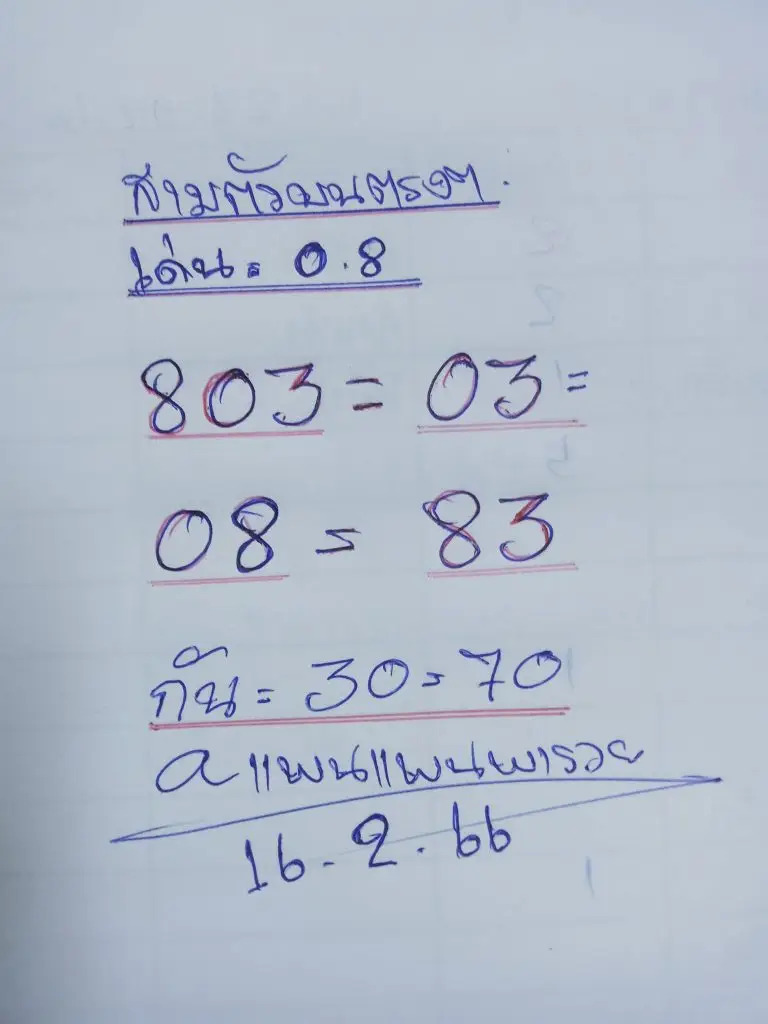 สามตัวบนตรงๆ.
เด่น = 0.8
803 = 03 =
08 = 83
กัน = 30 = 70
a แพนแพนพารวย
16.2.66